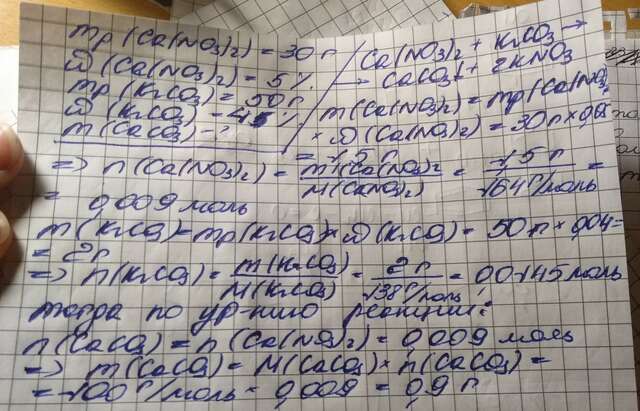 mp(Ca(NO3)2) = 30 г
ω(Ca(NO3)2) = 5%
mp(K2CO3) = 50 г
ω(K2CO3) - 4%
m(CaCO3) - ?
Ca(NO3)2 + K2CO3 →
→ CaCO3↓ + 2KNO3
m(Ca(NO3)2) = mp(Ca(NO3)2)
× ω(Ca(NO3)2) = 30 г × 0,05
= 1,5 г
=> n(Ca(NO3)2) = m(Ca(NO3)2) / M(Ca(NO3)2) = 1,5 г / 164 г/моль =
= 0,009 моль
m(K2CO3) = mp(K2CO3) × ω(K2CO3) = 50 г × 0,04 =
= 2 г
=> n(K2CO3) = m(K2CO3) / M(K2CO3) = 2 г / 138 г/моль = 0,0145 моль
тогда по ур-нию реакции:
n(CaCO3) = n(Ca(NO3)2) = 0,009 моль
=> m(CaCO3) = M(CaCO3) × n(CaCO3) =
= 100 г/моль × 0,009 = 0,9 г